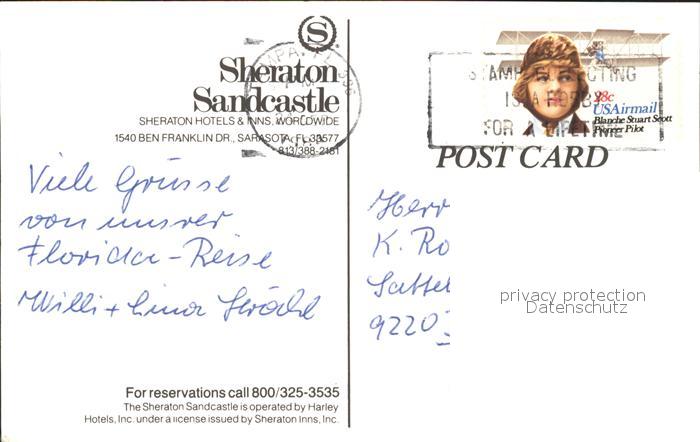 S
Sheraton
Sandcastle
SHERATON HOTELS & INNS, WORLDWIDE
1540 BEN FRANKLIN DR., SARASOTA, FL 33577
813/388-2181
TAMPA, FL 336
STAMP COLLECTING
IS A HOBBY
FOR A LIFETIME
28c
USAirmail
Blanche Stuart Scott
Pioneer Pilot
POST CARD
Viele Grüsse
von unsrer
Florida-Reise
Willi +
Herr
K. Ro
Sattel
9220
privacy protection
Datenschutz
For reservations call 800/325-3535
The Sheraton Sandcastle is operated by Harley
Hotels, Inc. under a license issued by Sheraton Inns, Inc.